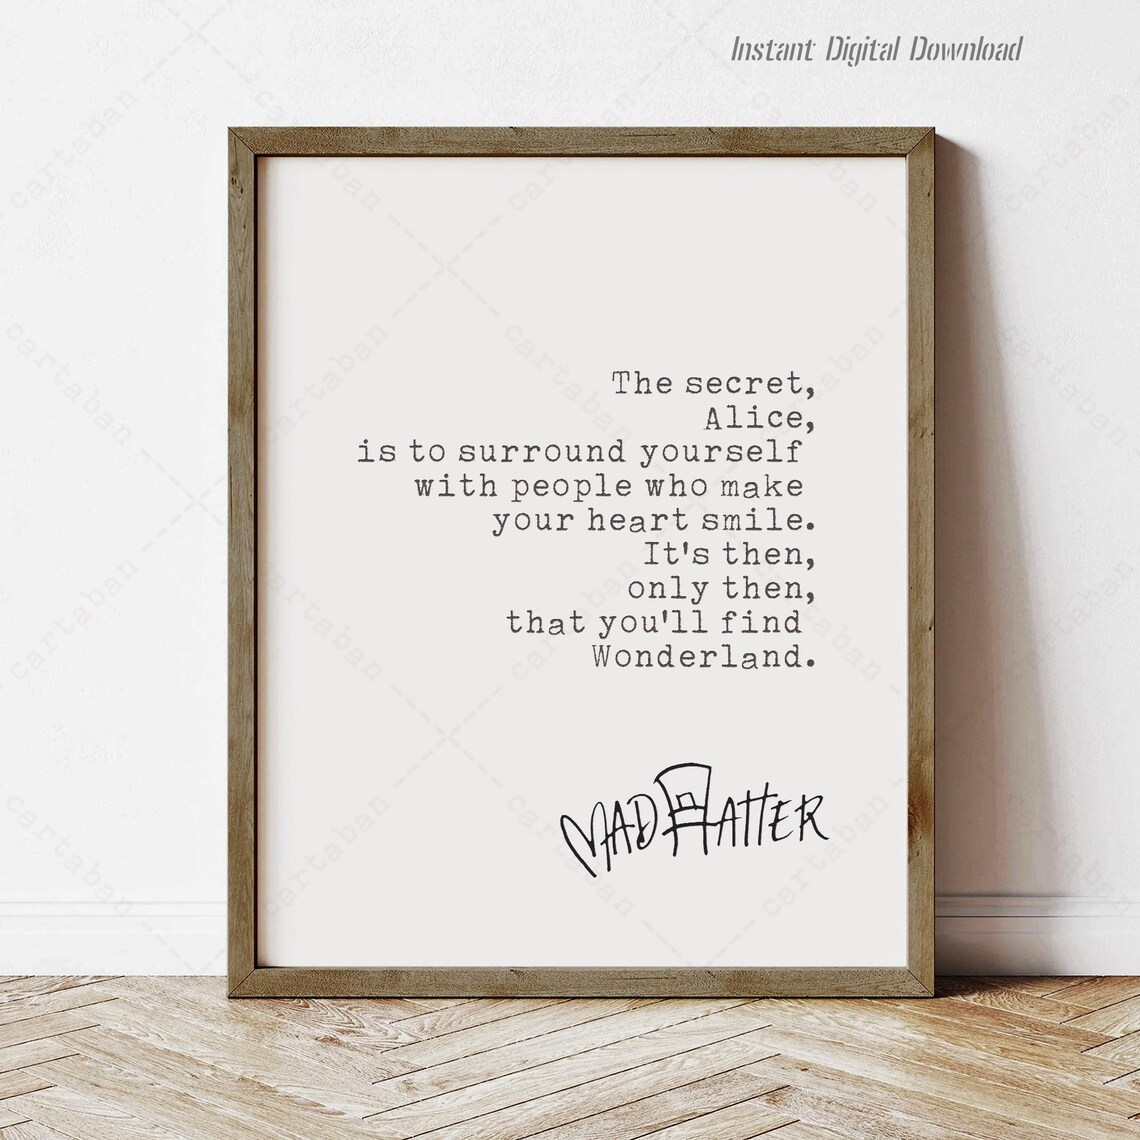 Instant Digital Download
The secret,
Alice,
is to surround yourself
with people who make
your heart smile.
It's then,
only then,
that you'll find
Wonderland.
MAD HATTER
cartaban